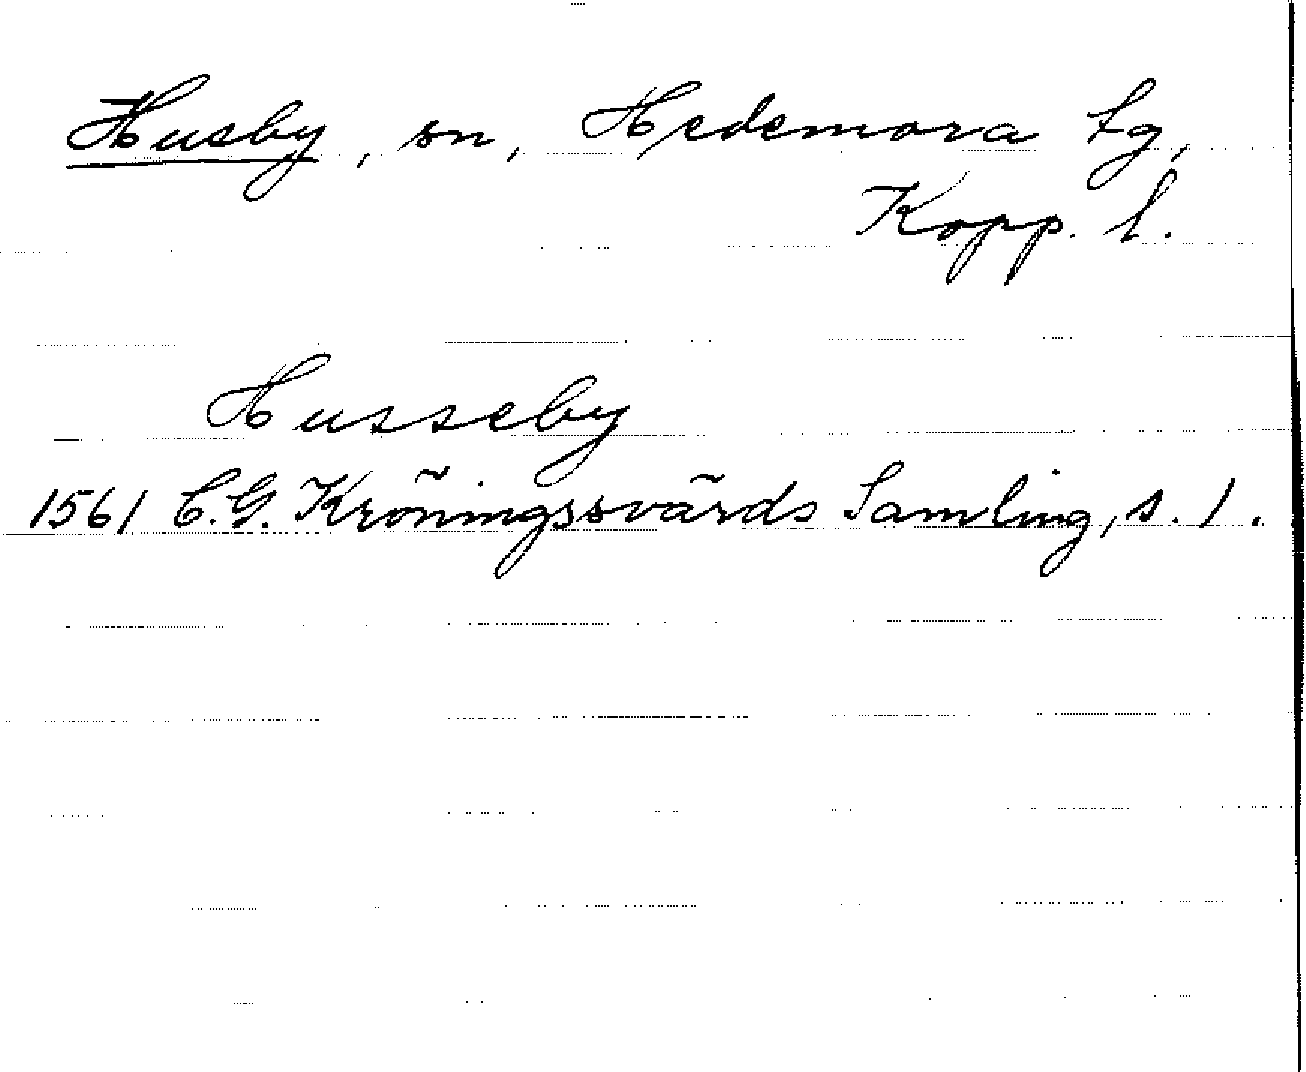 Husby, sn, Hedemora tg,
Kopp. l.
Husseby
1561 C.G. Kröningssvärds Samling, s. 1.